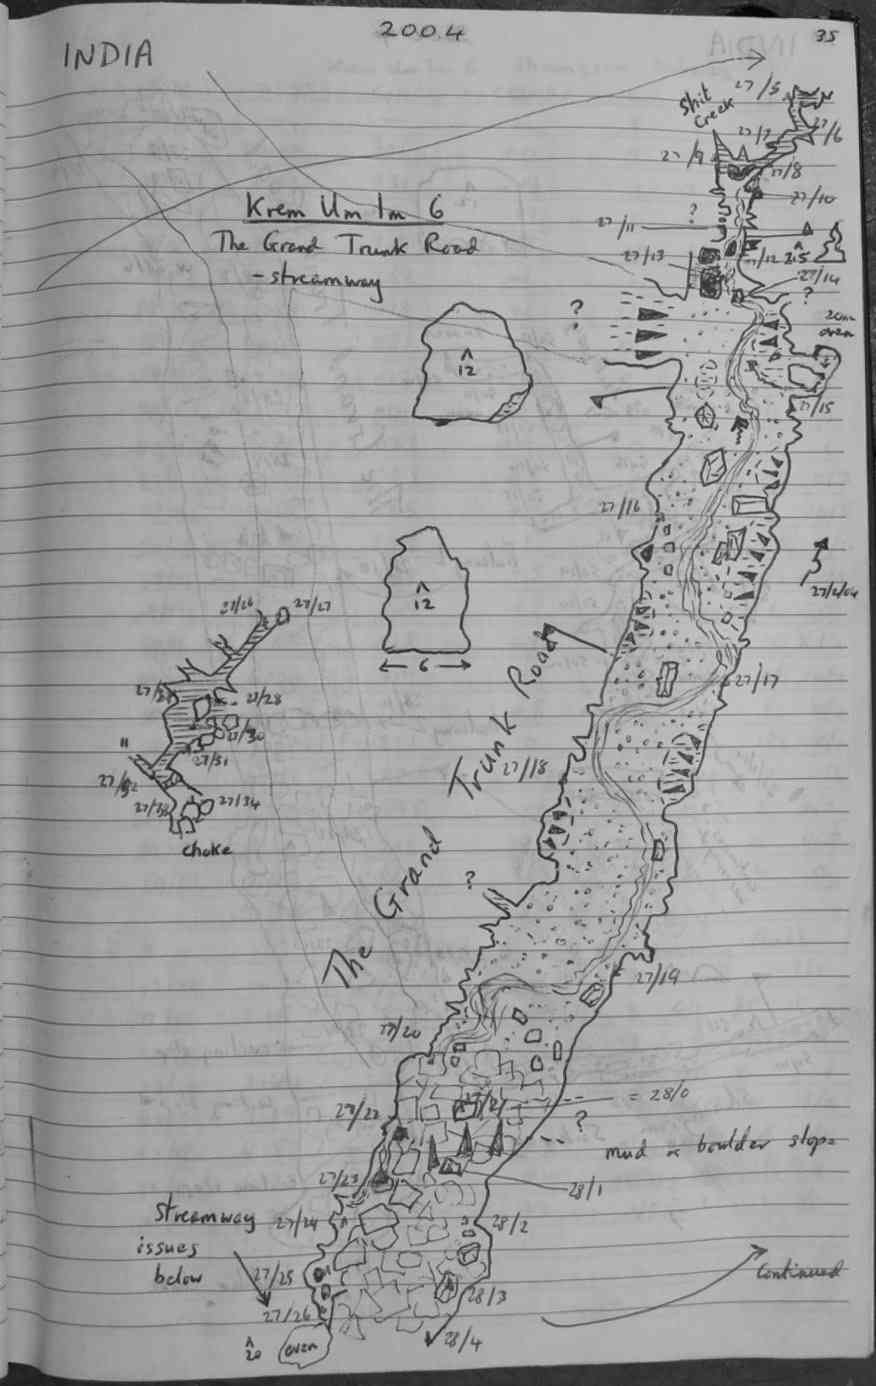 INDIA
2004
35
Krem Um Im 6
The Grand Trunk Road
- streamway
Shit
Creek
27/5
27/6
27/7
27/8
27/9
27/10
27/11
27/12
27/13
27/14
?
?
?
27/15
27/16
12
12
← 6 →
27/2/04
27/17
The Grand Trunk Road
27/18
27/26
27/27
27/28
27/30
27/31
27/34
choke
?
27/19
27/20
27/21
= 28/0
27/22
?
mud & boulder slope
27/23
28/1
27/24
28/2
streamway
issues
below
27/25
28/3
27/26
28/4
20
over
Continued